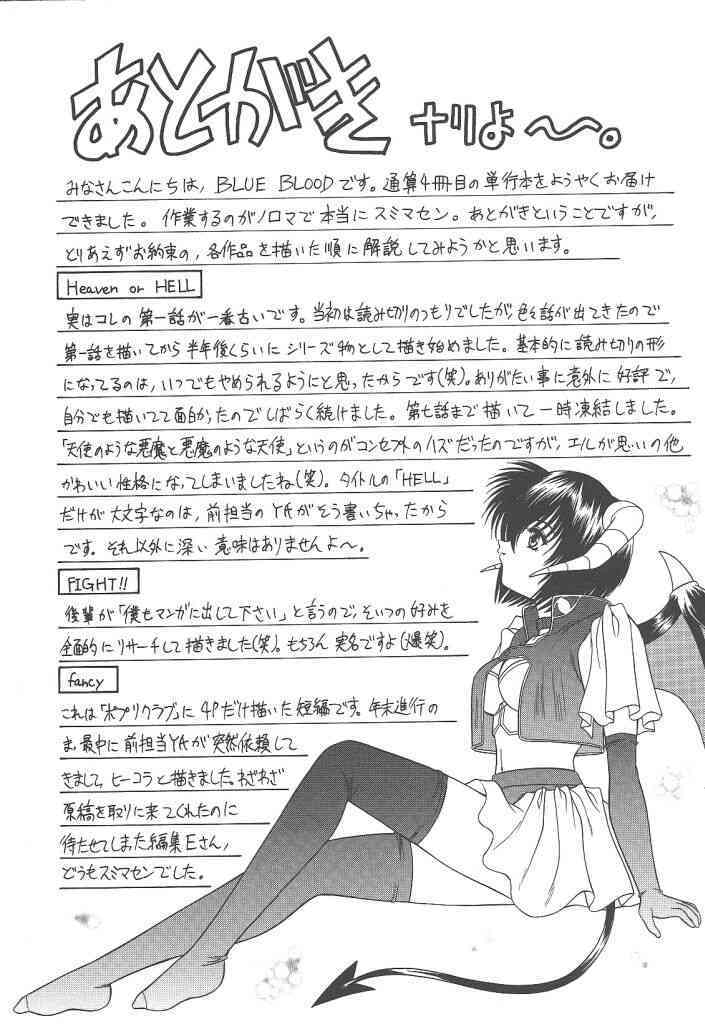 あとがき ナリよ〜。
みなさんこんにちは, BLUE BLOODです。通算4冊目の単行本をようやくお届け
できました。作業するのがノロマで本当にスミマセン。あとがきということですが,
とりあえずお約束の, 各作品を描いた順に解説してみようかと思います。
Heaven or HELL
実はコレの第一話が一番古いです。当初は読み切りのつもりでしたが, 色々話が出てきたので
第一話を描いてから半年後くらいにシリーズ物として描き始めました。基本的に読み切りの形
になってるのは, いつでもやめられるようにと思ったからです(笑)。ありがたい事に意外に好評で,
自分でも描いてて面白かったのでしばらく続けました。第七話まで描いて一時凍結しました。
「天使のような悪魔と悪魔のような天使」というのがコンセプトのハズだったのですが, エルが思いの他
かわいい性格になってしまいましたね(笑)。タイトルの「HELL」
だけが大文字なのは, 前担当のYAがそう書いちゃったから
です。それ以外に深い意味はありませんよ〜。
FIGHT!!
後輩が「僕もマンガに出して下さい」と言うので, そいつの好みを
全面的にリサーチして描きました(笑)。もちろん実名ですよ(爆笑)。
fancy
これは「ポプリクラブ」に4Pだけ描いた短編です。年末進行の
真最中に前担当YAが突然依頼して
きまして, ヒーコラと描きました。わざわざ
原稿を取りに来てくれたのに
待たせてしまった編集Eさん,
どうもスミマセンでした。